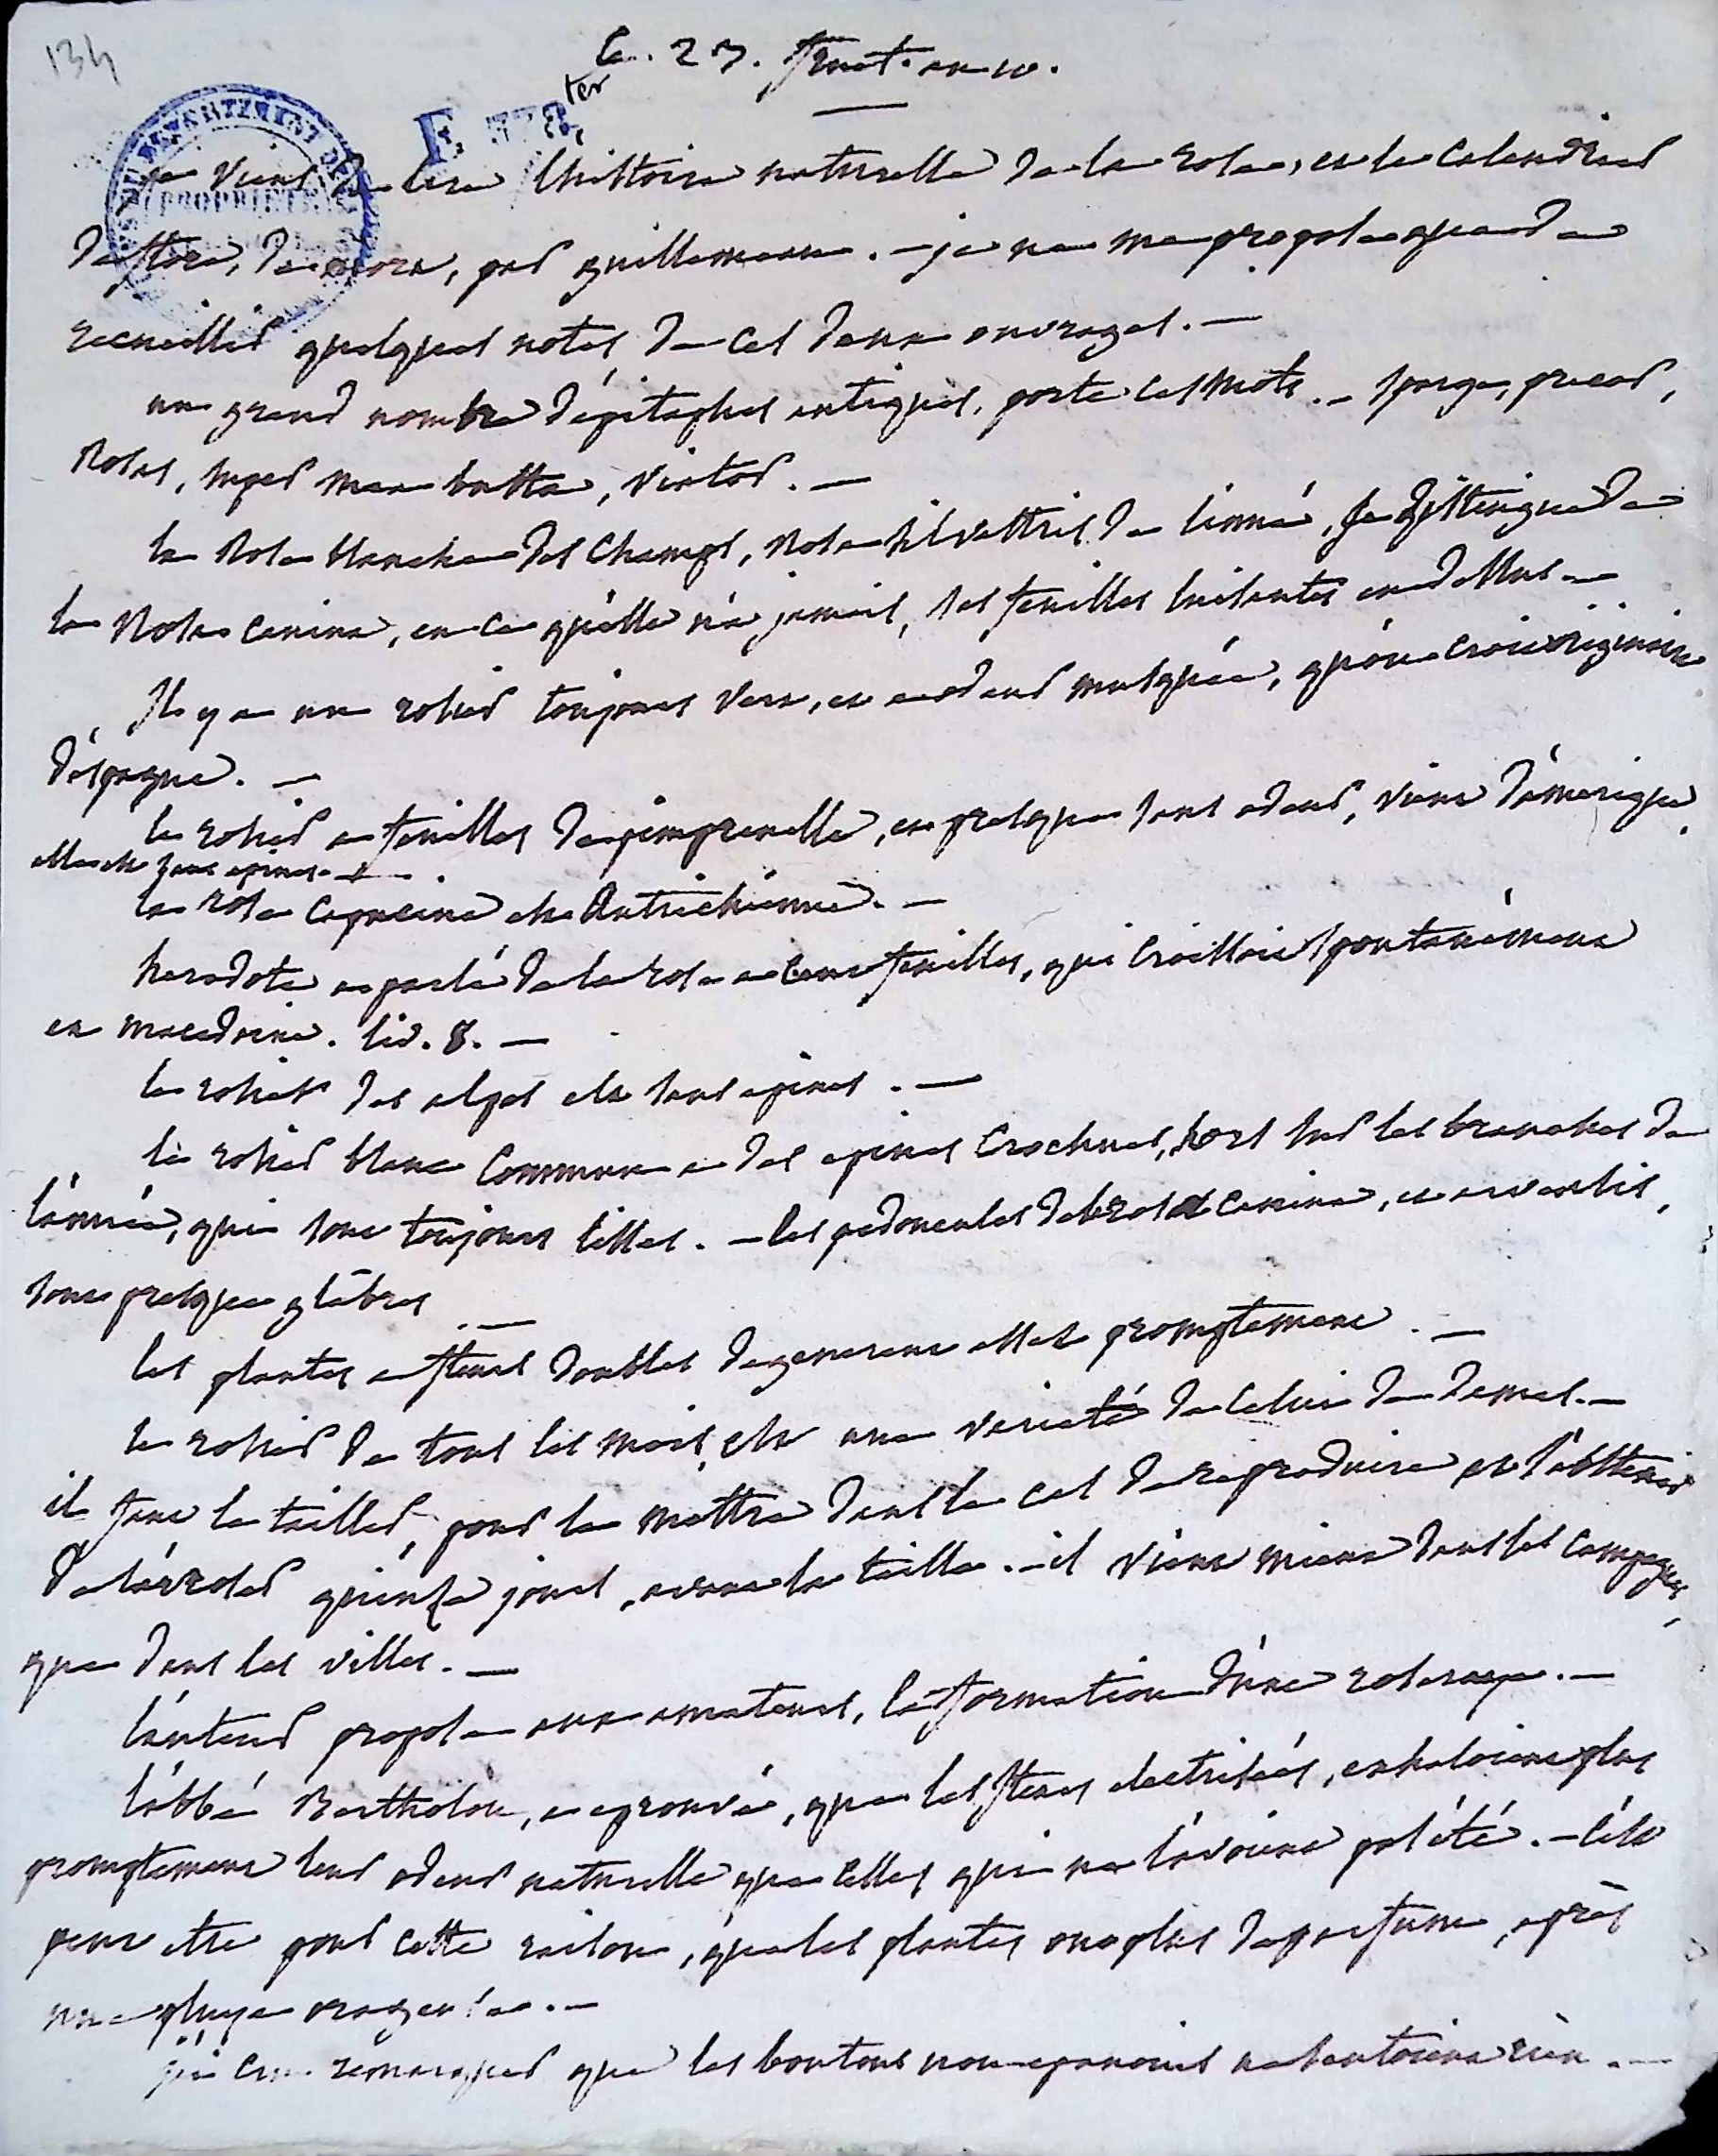 134
Le 23. fruct. an 10.
E 378 ter
je viens de lire l'histoire naturelle de la rose, et le calendrier
de flore, par guillemeau. - je ne me propose que de
recueillir quelques notes, de ces deux ouvrages. -
un grand nombre d'épitaphes antiques, porte ces mots. - sparge, precor,
Rosas, super mea busta, viator. -
la Rose blanche des champs, Rosa silvestris de linné, se distingue de
la Rosa canina, en ce qu'elle n'a jamais, ses feuilles luisantes en dessus. -
Il y a un rosier toujours vert, et a odeur musquée, qu'on croit originaire
d'éspagne. -
le rosier a feuilles de pimprenelle, et presque sans odeur, vient d'amérique,
elle est sans épines. -
la rose capucine est Autrichienne. -
herodote a parlé de la rose a cent feuilles, qui croissoit spontanément
en macedoine. liv. 8. -
le rosier des alpes est sans épines. -
le rosier blanc commun a des épines crochues, hors sur les branches de
l'année, qui sont toujours lisses. - les pedoncules de la rosa canina, et arvensis,
sont presque glâbres. -
les plantes a fleurs doubles degenerent assez promptement. -
le rosier de tous les mois, est une varieté de celui de Damas. -
il faut le tailler, pour le mettre dans le cas de reproduire et s'abstenir
de l'arroser quinze jours, avant la taille. - il vient mieux dans les campagnes,
que dans les villes. -
l'auteur propose aux amateurs, la formation d'une roseraye. -
l'abbé Bertholon, a eprouvé, que les fleurs électrisées, exhaloient plus
promptement leur odeur naturelle que celles qui ne l'avoient pas été. - c'est
peut etre pour cette raison, que les plantes ont plus de parfum, après
une pluye orageuse. -
j'ai cru remarquer que les boutons non epanouis ne sentoient rien. -